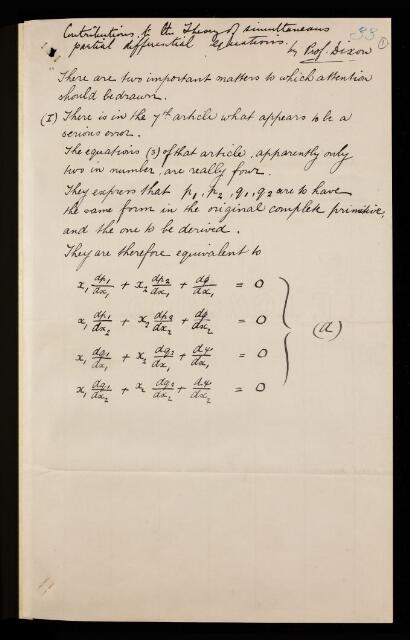 Contributions to the Theory of simultaneous
partial differential equations. by Prof. Dixon
①
There are two important matters to which attention
should be drawn.
(I) There is in the 7th article what appears to be a
serious error.
The equations (3) of that article, apparently only
two in number, are really four.
They express that p₁, p₂, q₁, q₂ are to have
the same form in the original complete primitive,
and the one to be derived.
They are therefore equivalent to
x₁ dp₁/dx₁ + x₂ dp₂/dx₁ + dφ/dx₁ = 0
x₁ dp₁/dx₂ + x₂ dp₂/dx₂ + dφ/dx₂ = 0
(a)
x₁ dq₁/dx₁ + x₂ dq₂/dx₁ + dψ/dx₁ = 0
x₁ dq₁/dx₂ + x₂ dq₂/dx₂ + dψ/dx₂ = 0